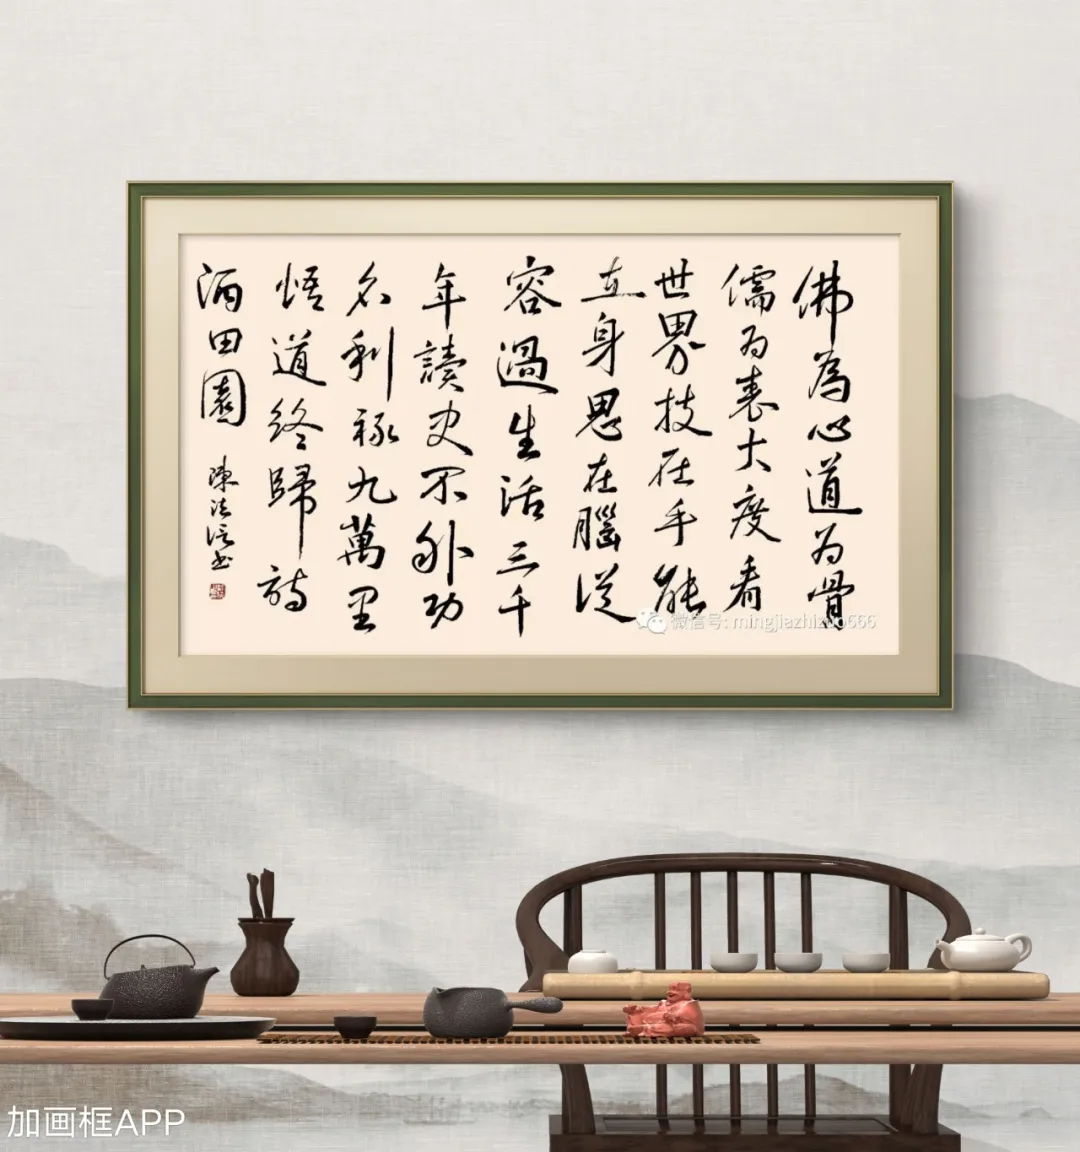 佛為心道为骨
儒为表大度看
世界技在手能
立身思在腦從
容過生活三千
年讀史不外功
名利祿九萬里
悟道終歸詩
酒田園
陳法信书
微信号: mingjiazhizuo666
加画框APP